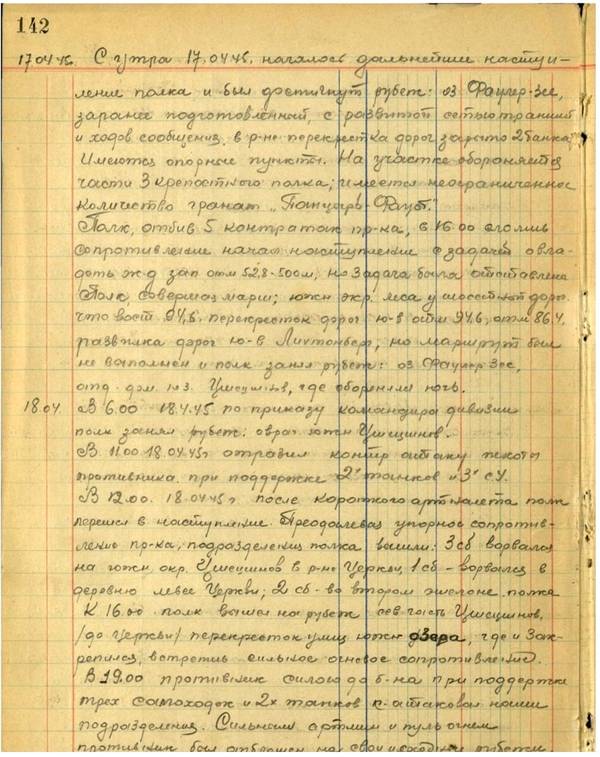 142
17.04.45. С утра 17.04.45. началось дальнейшие насту-
пление полка и был достигнут рубеж: оз Фаулер-Зее,
заранее подготовленный, с развитой сетью траншей
и ходов сообщения, в р-не перекрестка дорог зарыто 2 танка,
Имеются опорные пункты. На участке обороняется
части 3 крепостного полка; имеется неограниченное
количество гранат „Панцырь Фауст."
Полк, отбив 5 контратак пр-ка, в 16 00 сломив
сопротивление начал наступление с задачей овла-
деть ж.д зап отм 52,8-500м, но задача была отставлена
Полк, совершая марш; южн окр. леса у шоссейной дорог.
что вост. 94,6. перекресток дорог ю-в отм 94.6, отм 86.4,
развилка дорог ю-в Лихтенберг, но маршрут был
не выполнен и полк занял рубеж: оз Фаулер Зее,
отд. дом. юз. где оборонял ночь.
18.04. В 6.00 18.4.45 по приказу командира дивизии
полк занял рубеж: овраг южн
В 11.00 18.04.45г отразил контр атаку пехоты
противника при поддержке 2х танков и 3х СУ.
В 12.00. 18.04.45г. после короткого артналета полк
перешел в наступление. Преодолевая упорное сопротив-
ление пр-ка, подразделения полка вышли: 3 сб ворвался
на южн. окр. в р-не Церкви, 1 сб - ворвался в
деревню левее Церкви; 2 сб - во втором эшелоне полка
К 16.00 полк вышел на рубеж сев часть
/до Церкви/ перекресток улиц южн озера, где и зак-
репился, встретив сильное огневое сопротивление.
В 19.00 противник силою до б-на при поддержке
трех самоходок и 2х танков к-атаковал наши
подразделения. Сильным артмин и пул. огнем
противник был отброшен на свои исходные рубежи.